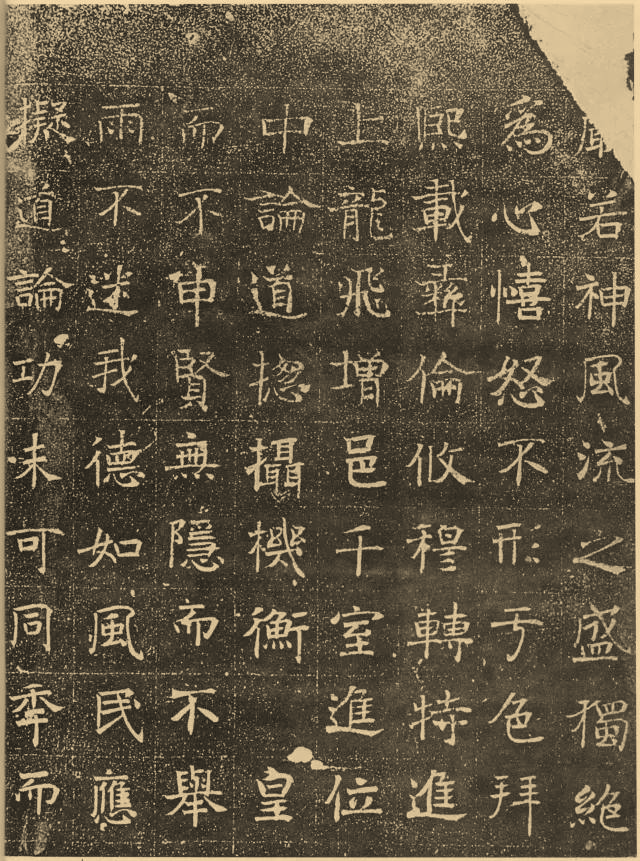 若神風流之盛獨絶
爲心憘怒不形于色拜
熈載彞倫攸穆轉特進
上龍飛增邑千室進位
中論道揔攝機衡皇
而不申賢無隱而不舉
雨不迷我德如風民應
擬道論功未可同秊而